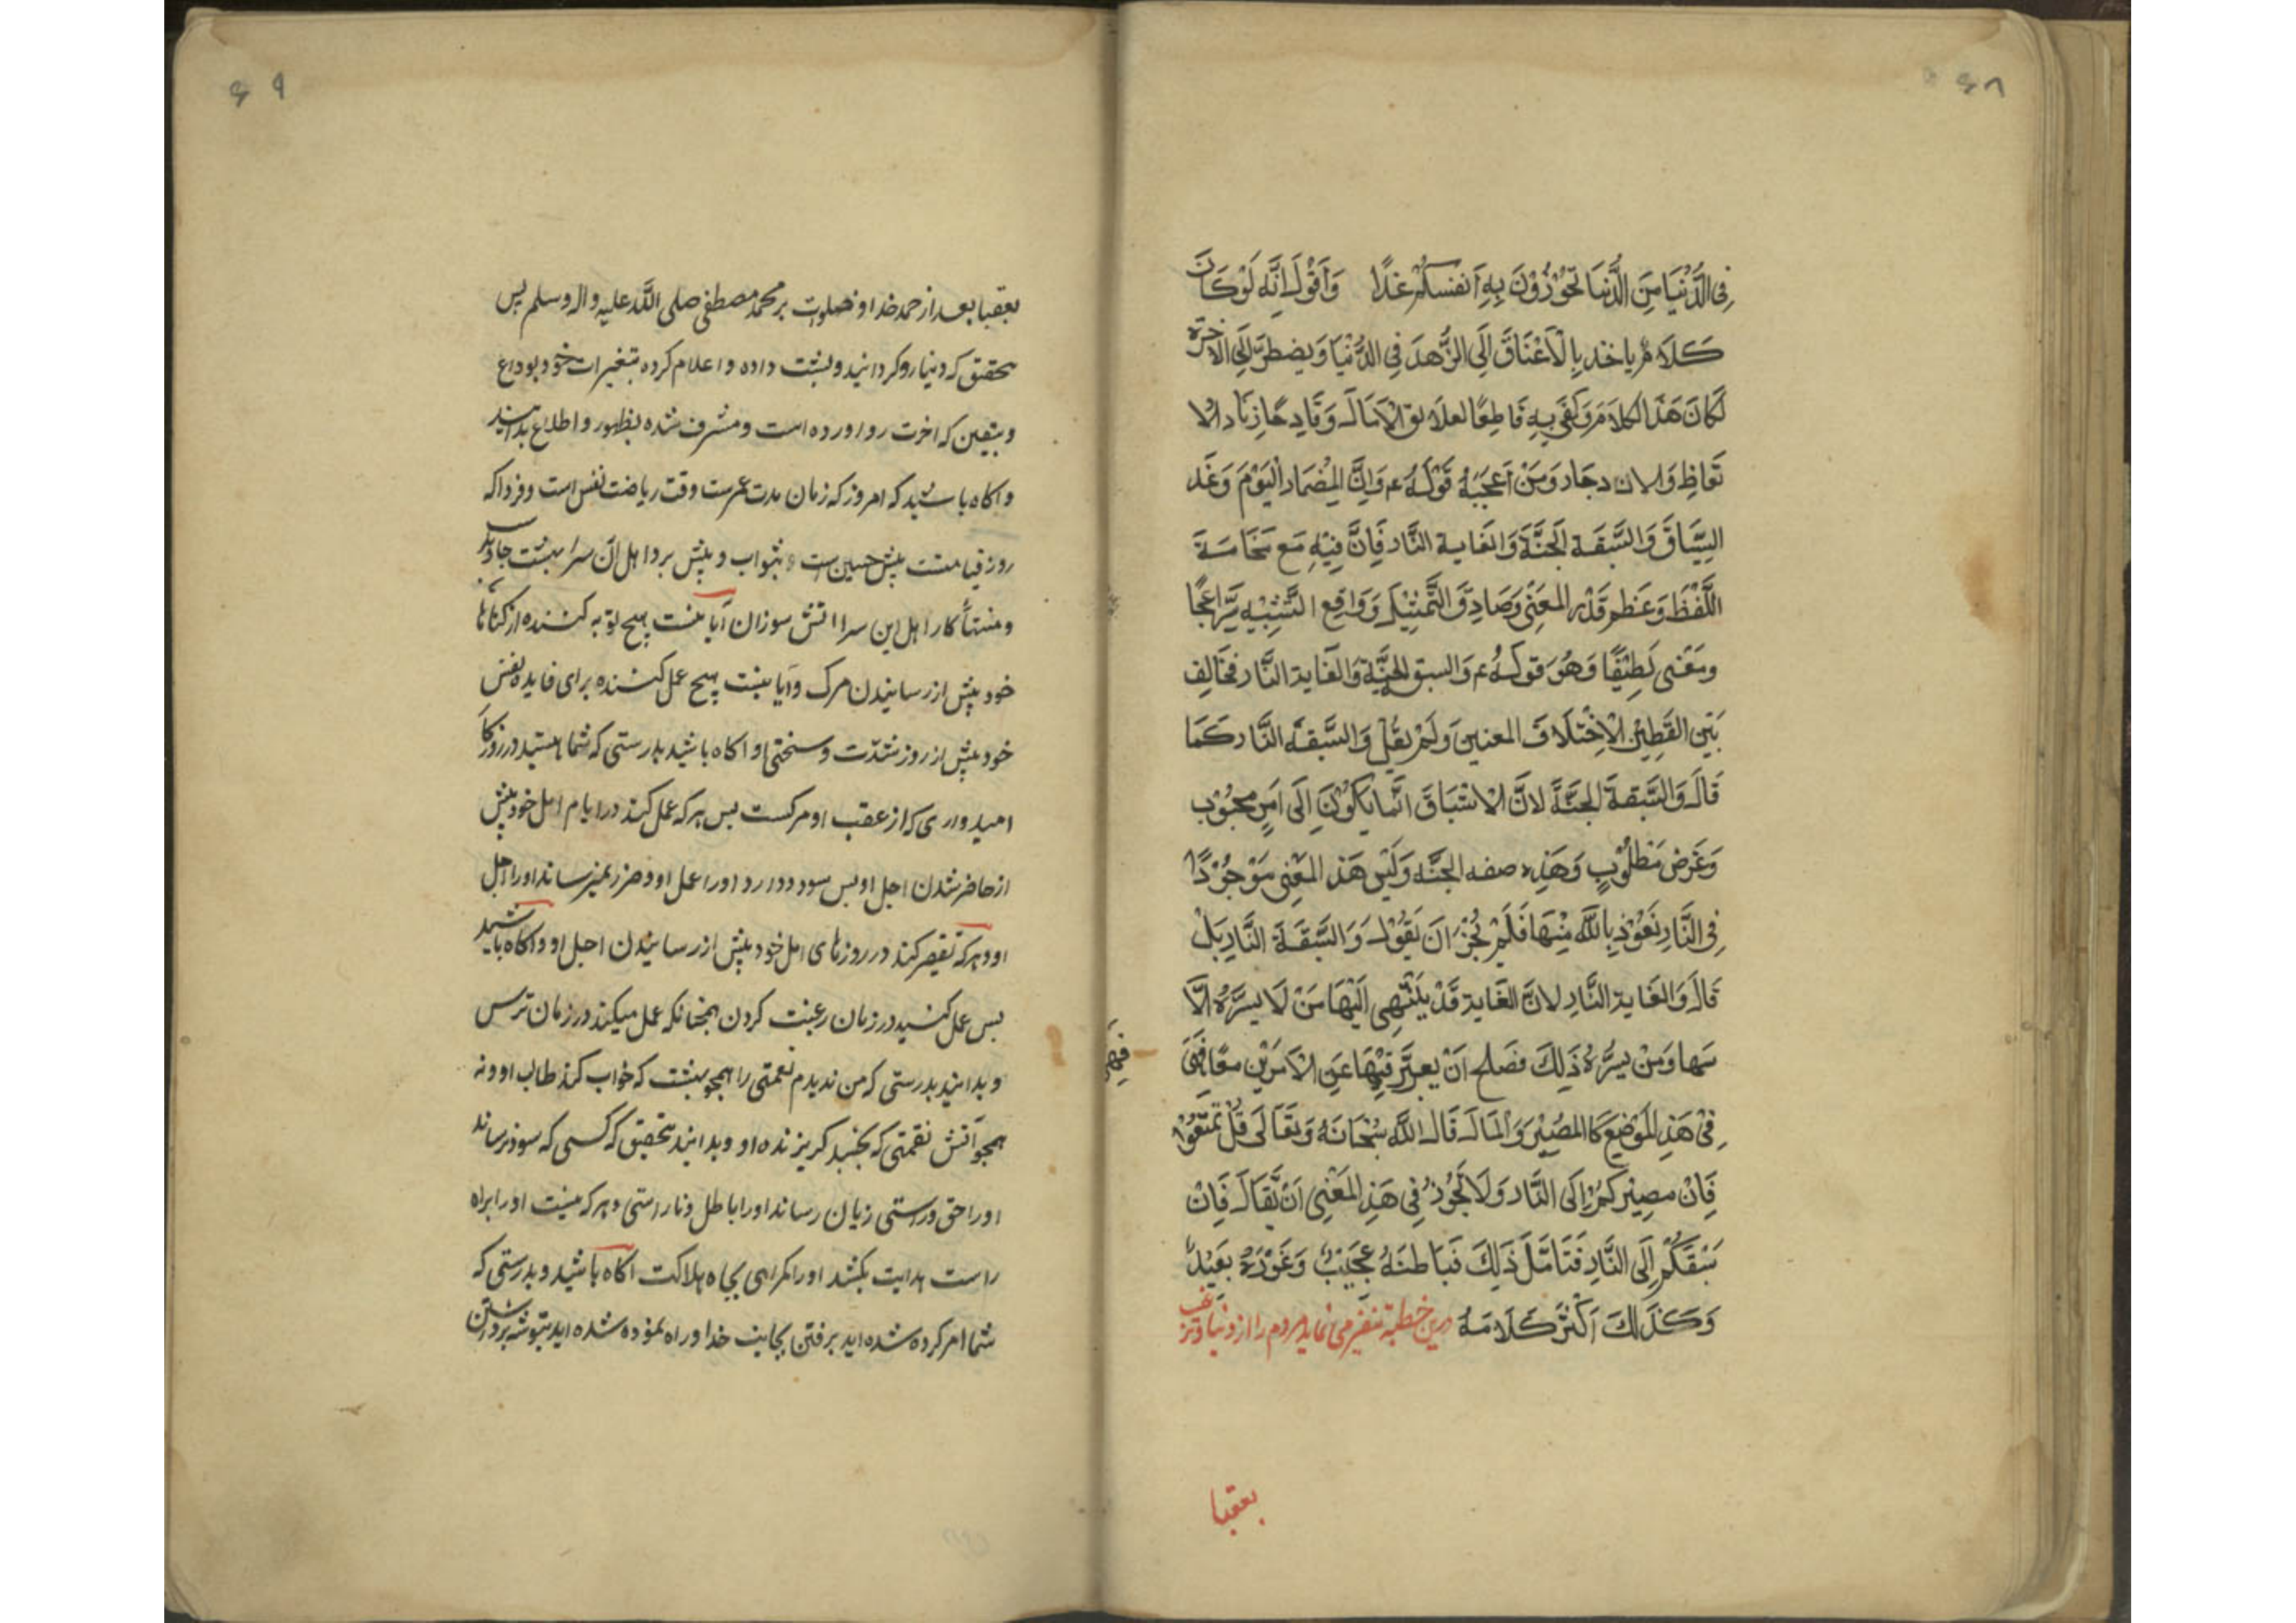 ۶۸
فِي الدُّنْيَا مِنَ الدُّنْيَا تَحُوْزُوْنَ بِهِ اَنفُسَكُمْ غَدًا وَاَقُوْلُ اِنَّه لَوْ كَانَ
كَلَامٌ ياخذ بِالْاَعْنَاقِ اِلَى الزُّهدِ فِي الدُّنْيَا وَيضطرّ اِلَى الاخرة
لَكَانَ هَذَا الكلامَ وَكَفَى بِهِ قَاطِعًا لعلائق الْاٰمَالِ وَقَادِحًا زِنَاد الا
تّعَاظِ وَالازدجَار وَمِنْ اَعْجَبِهُ قَوْلُهُ ع وَاِنَّ المِضمَار الْيَوْمَ وَغَد
السِّبَاقَ وَالسَّبَقَة الْجَنَّةَ وَالغَاية النَّار فَاِنَّ فِيْهِ مَع فَخَامَةَ
اللَّفْظِ وَعَظم قَدْر المعَنَى وَصَادِقَ التَّمثِيْل وَوَاقِع التَّشِبْيِه سِرًّا عَجًا
ومَعْنى لَطِيْفًا وَهُوَ قوَلُهُ ع والسبق الجَنَّة وَالغَاية النَّار فخَالفِ
بَيْن اللَّفظيْن لاِخْتلَاف المعنيين وَلَمْ يقُلْ وَالسَّبقَة النَّار كَمَا
قَالَ وَالسَّبقةَ الجنَّةَ لانَّ الْاستَبَاقَ انَّما يَكُوْن اِلَى اَمرٍ محبُوْب
وَغَرَض مَطلُوْبٍ وَهَذِه صفه الجنَّه وَلَيْس هَذ المَعْنى مَوْجُوْدًا
فِى النَّارِ نَعُوْذ بِالله مِنْهَا فَلَمْ يُجْز اَن يَقُوْل وَالسَّبَقَة النَّار بَلْ
قَالَ وَالغَاية النَّار لانَّ الغَاية قَدْ يَنْتْهِى اَليْهَا مَنْ لَا يسرّه اِلَّا
نتها وَمَنْ يسرُّهُ ذَلِكَ فصَلح اَنْ يعبَّر بِهَا عَنِ الْاَمَرَيْنِ معًا فَهِىَ
فِىْ هَذِ المَوْضِعِ كَالمصِيْر وَالْمَالَ قَالَ الله سُبْحَانَهُ وَتَعَالَى قُلْ تَمَتَّعُوْا
فَاِنْ مصِيْركُمْ اِلَى النَّار وَلَا يَجُوْز فِى هَذِ المَعْنِى اَنْ يُّقَالَ فَاِنْ
سَبْقَكُمْ اِلَى النَّارِ فَتَامَّلَ ذَلِكَ فَبَاطنُهُ عَجَيْبٌ وَغَوْرُهُ بَعَيْدٌ
وَكَذَلِكَ اَكْثَرُ كَلَامَهُ درین خطبه تنفیر می نماید مردم را از دنیا و ترغیب
بعقبا
۶۹
بعقبا بعد از حمد خدا و صلوات بر محمد مصطفی صلی الله علیه واله وسلم پس
بتحقیق که دنیا رو گردانید و پشت داده و اعلام کرده بتغیرات خود بوداع
و بیقین که اخرت رو اورده است و مشرف شده بظهور و اطلاع بدانید
و اکاه باشید که امروز که زمان مدت عمرست وقت ریاضت نفس است و فردا که
روز قیامتست پیش جستن است و پیش برد اهل آن سرا بهشت جاوید
و منتهاء کار اهل این سرا اتش سوزان آیا نیست هیچ توبه کننده از کناها
خود پیش از رسانیدن مرک و آیا نیست هیچ عمل کننده برای فایده نفس
خود پیش از روز شدّت و سختی او اکاه باشید بدرستی که شما هستید در روزکا
امیدواری که از عقب او مرکست پس هر که عمل کند در ایام امل خود پیش
از حاضر شدن اجل او پس سود دارد اورا عمل او و ضرر نمیرساند اورا اجل
او و هر که تقصیر کند در روزهای امل خود پیش از رسانیدن اجل او و اکاه باشید
پس عمل کنید در زمان رغبت کردن همچنانکه عمل میکند در زمان ترس
و بدانید بدرستی که من ندیدم نعمتی را همچو بهشت که خواب کند طالب او و نه
همچو آتش نقمتی که بخسبد کریزنده او و بدانید بتحقیق که کسی که سود نرساند
اورا حق و راستی زیان رساند اورا باطل و ناراستی و هر که نیست اورا براه
راست هدایت بکشد اورا کمراهی بچاه هلاکت اکاه باشید و بدرستی که
شما امر کرده شده اید برفتن بجانب خدا و راه نموده شده اید بتوشه برداشتن